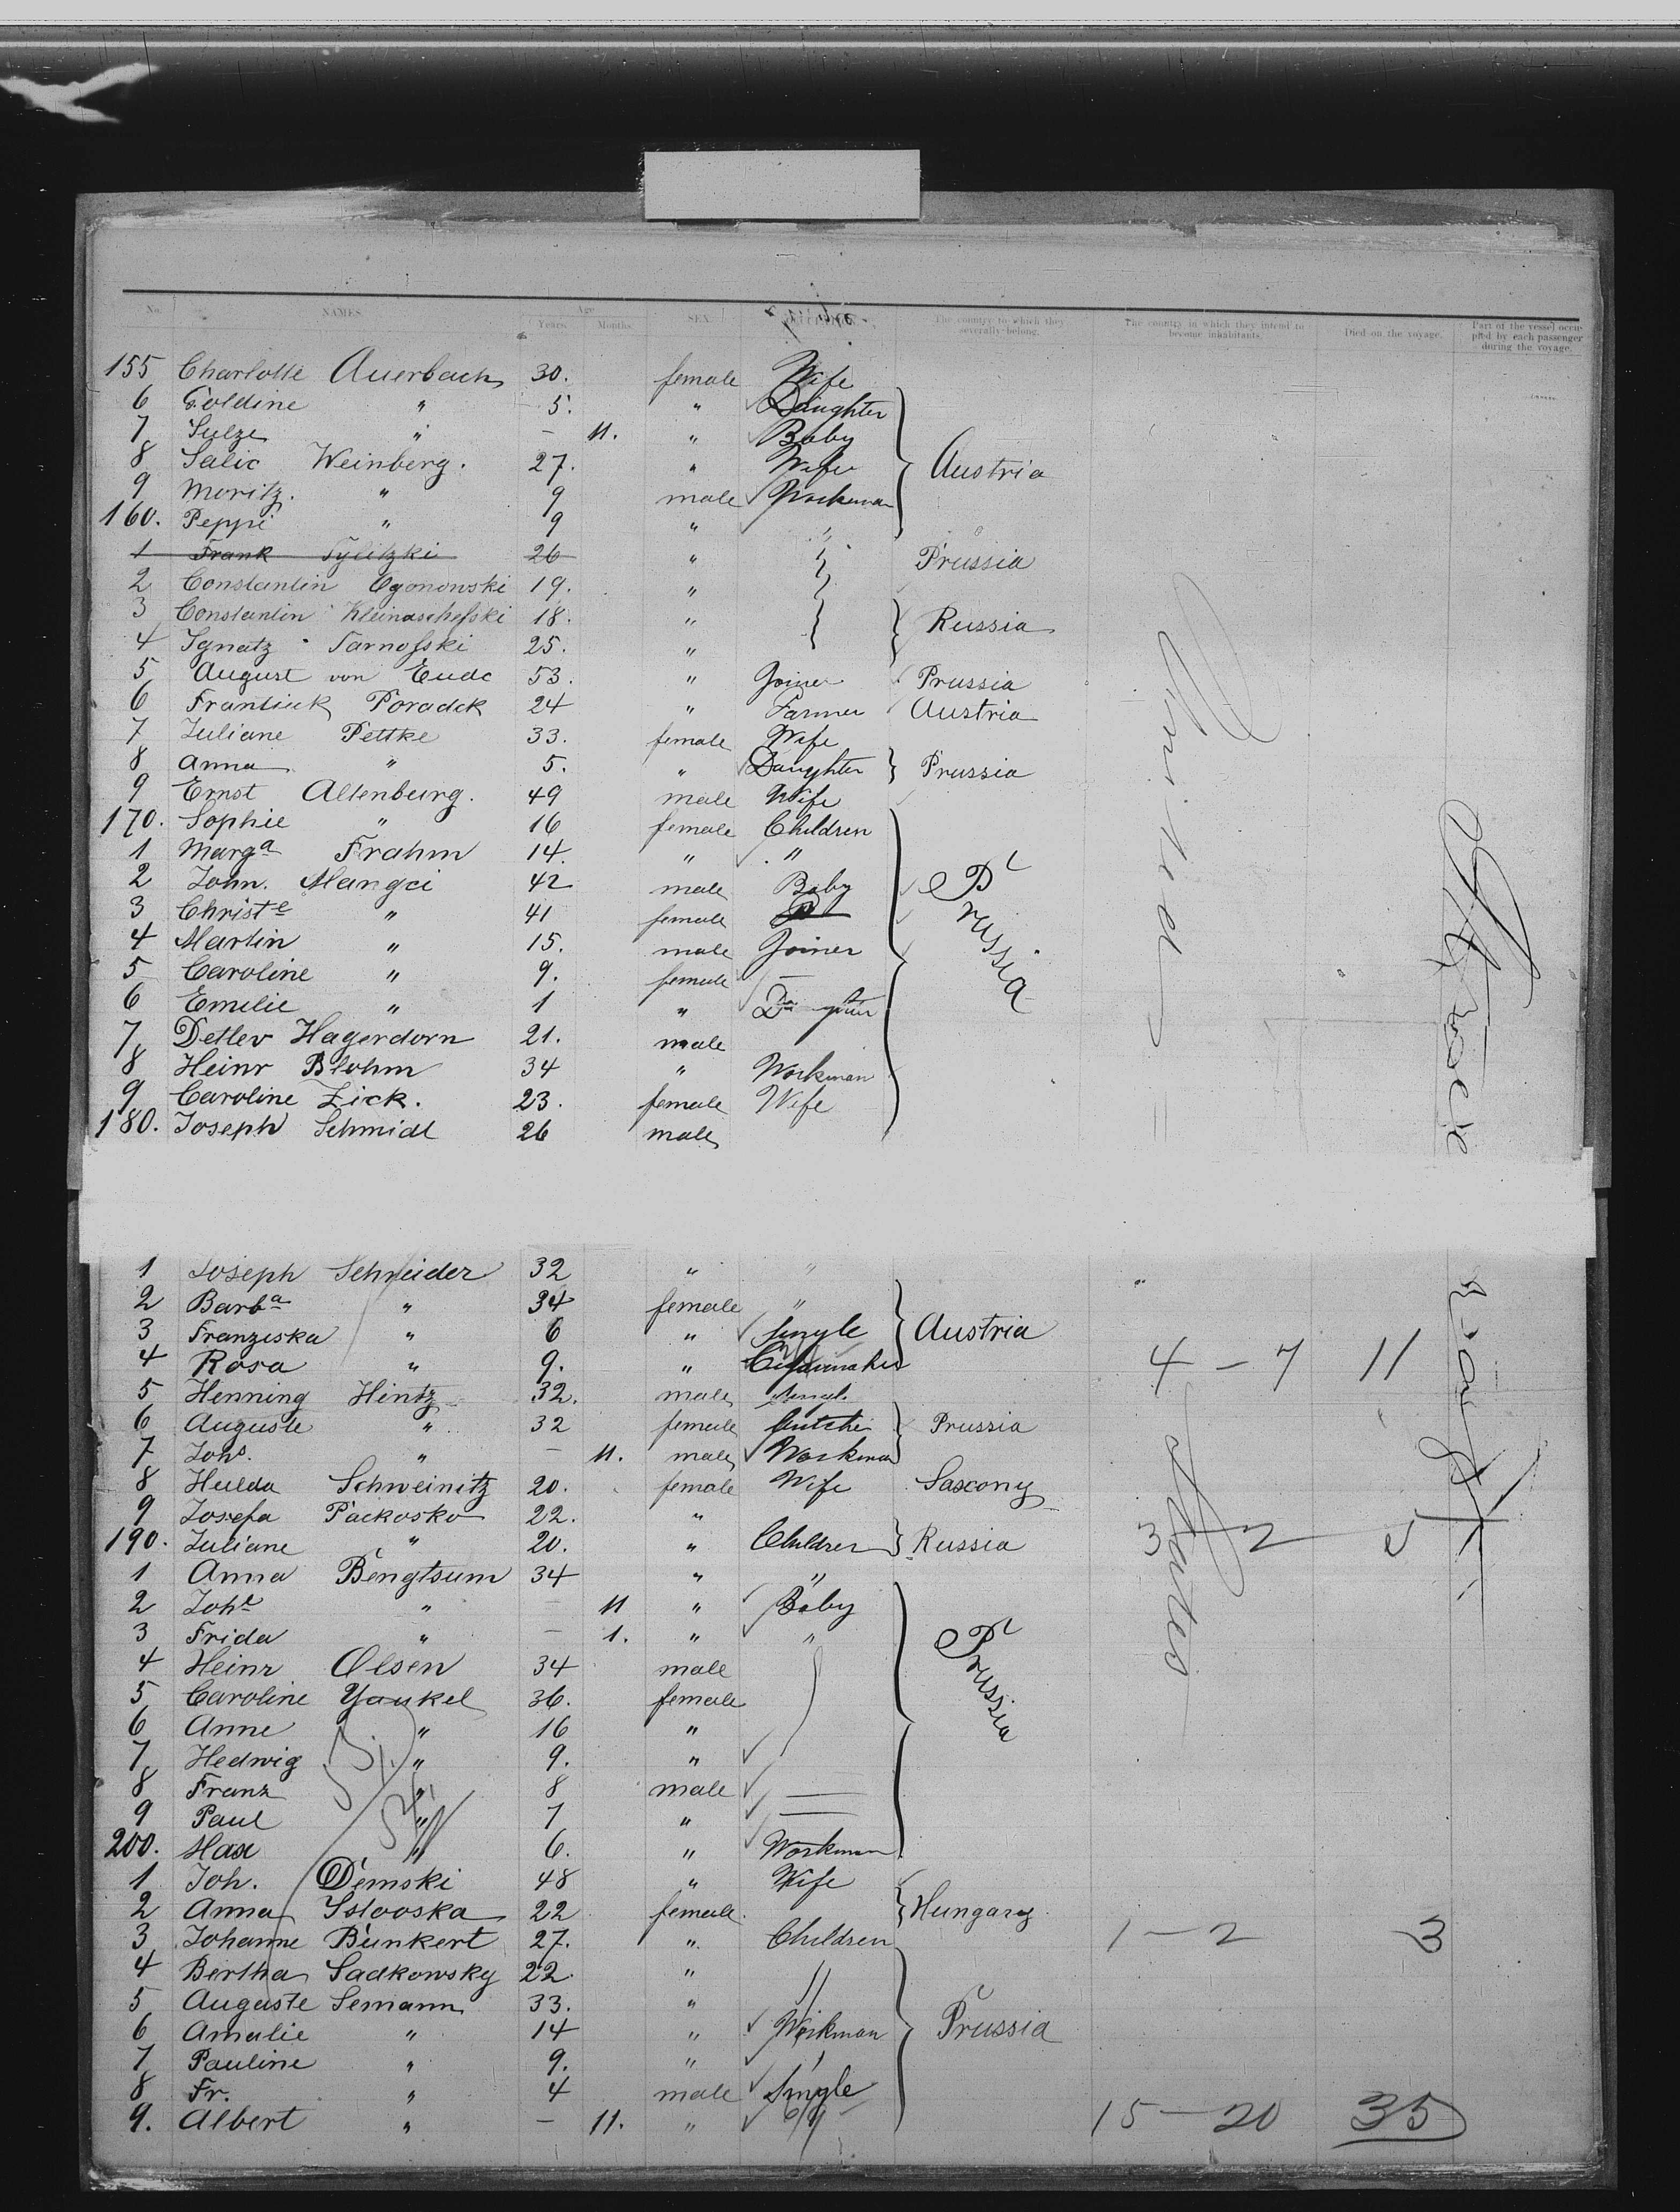 No. NAMES Age SEX. The country to which they severally belong. The country in which they intend to become inhabitants. Died on the voyage. Part of the vessel occupied by each passenger during the voyage.
Years. Months.
155 Charlotte Auerbach 30. female Wife
6 Goldine " 5. " Daughter
7 Sulze " – 11. " Baby
8 Salie Weinberg. 27. " Wife Austria
9 Moritz. " 9 male Workman
160. Peppi " 9 " "
1 Frank Tylitzki 26 " Prussia
2 Constantin Ogonowski 19. "
3 Constantin Kleinaschefski 18. " Russia
4 Ignatz Tarnofski 25. "
5 August von Eude 53. " Joiner Prussia
6 Frantisek Poradek 24 " Farmer Austria
7 Juliane Pettke 33. female Wife
8 Anna " 5. " Daughter Prussia
9 Ernst Altenburg. 49 male Wife
170. Sophie " 16 female Children
1 Marga Frahm 14. " "
2 John. Mangei 42 male Baby Prussia
3 Christe " 41 female
4 Martin " 15. male Joiner
5 Caroline " 9. female –
6 Emilie " 1 " Daughter
7 Detlev Hagerdorn 21. male
8 Heinr Blohm 34 " Workman
9 Caroline Zick. 23. female Wife
180. Joseph Schmidt 26 male
1 Joseph Schneider 32 " "
2 Barba " 34 female "
3 Franziska " 6 " Single Austria
4 Rosa " 9. " 4 – 7 11
5 Henning Hintz 32. male
6 Auguste " 32 female Prussia
7 Johs. " – 11. male Workman
8 Hulda Schweinitz 20. female Wife Saxony
9 Josefa Packosko 22. "
190. Juliane " 20. " Children Russia 3 2 5
1 Anna Bengtsum 34 " "
2 Johe " – 11 " Baby
3 Frida " – 1. " " Prussia
4 Heinr Olsen 34 male
5 Caroline Yaukel 36. female
6 Anne " 16 "
7 Hedwig " 9. "
8 Franz " 8 male –
9 Paul " 7 " –
200. Max " 6. " Workman
1 Joh. Demski 48 " Wife
2 Anna Islooska 22 female Hungary
3 Johanne Bunkert 27. " Children 1 – 2 3
4 Bertha Sadkowsky 22. "
5 Auguste Semann 33. " "
6 Amalie " 14 " Workman Prussia
7 Pauline " 9. "
8 Fr. " 4 male Single
9. Albert " – 11. " 15 – 20 35